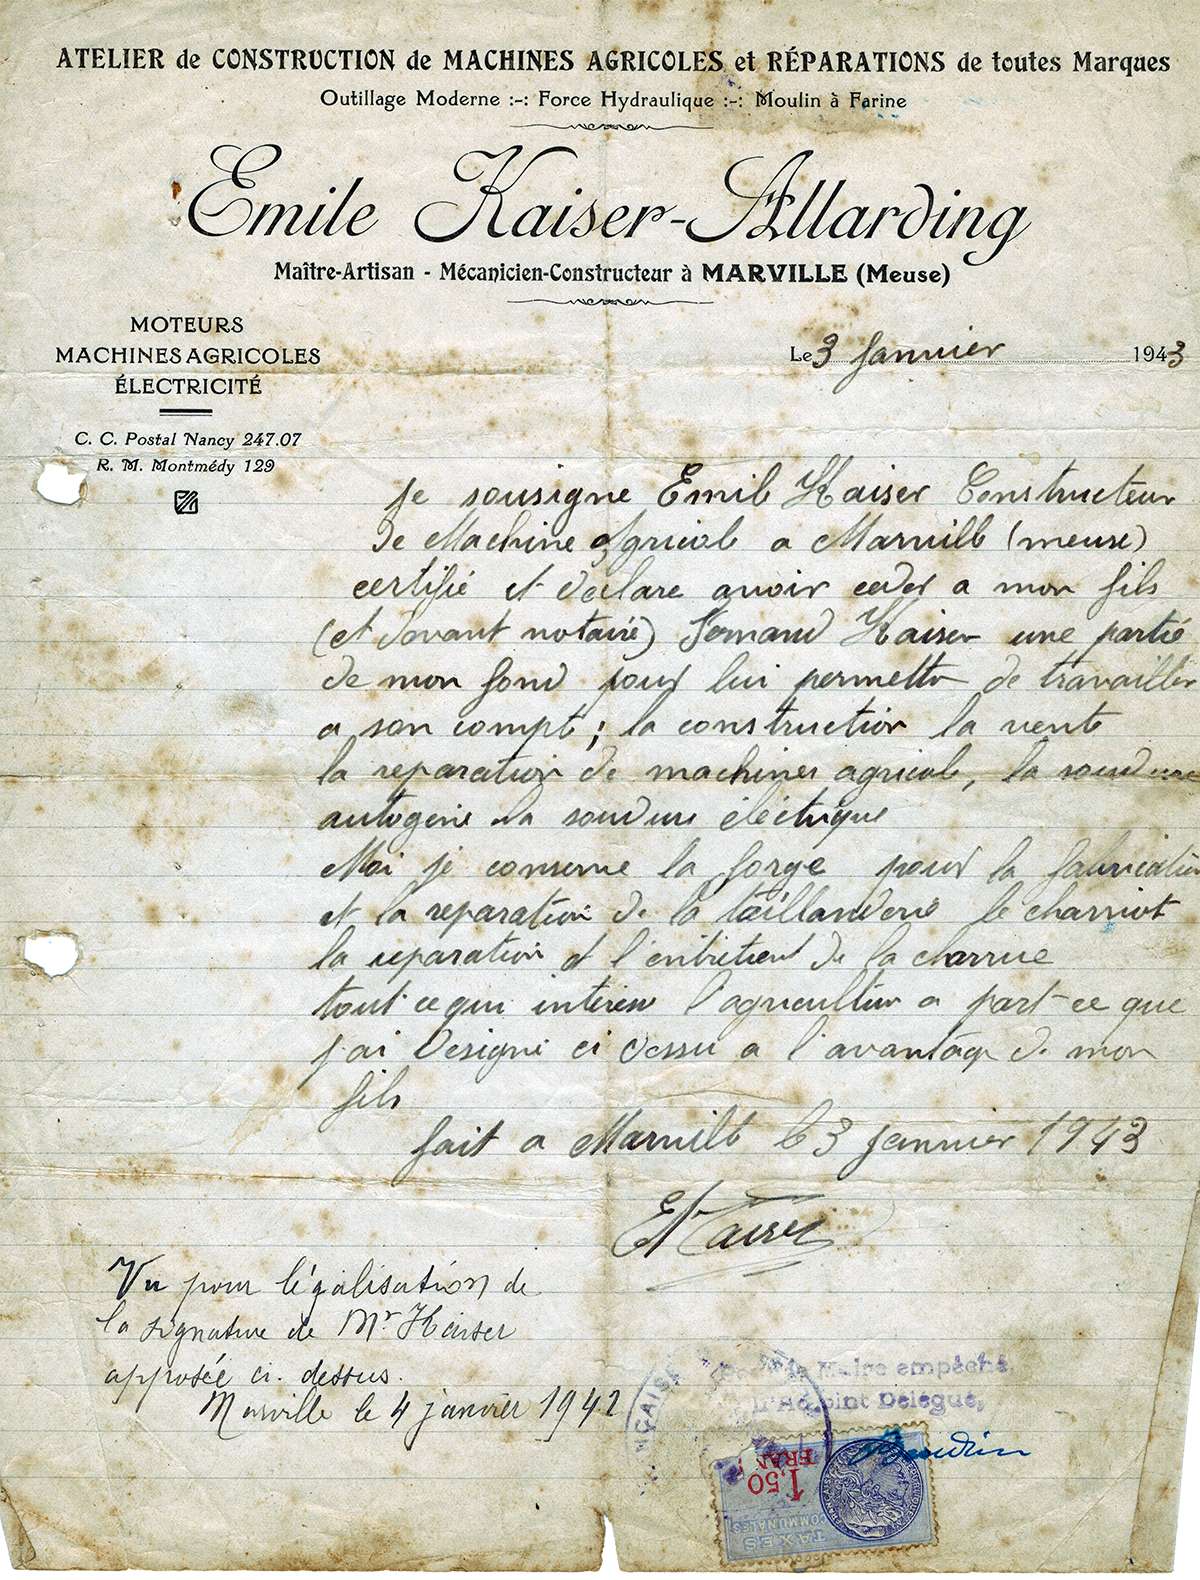 ATELIER de CONSTRUCTION de MACHINES AGRICOLES et RÉPARATIONS de toutes Marques
Outillage Moderne :-: Force Hydraulique :-: Moulin à Farine
Emile Kaiser-Allarding
Maître-Artisan - Mécanicien-Constructeur à MARVILLE (Meuse)
MOTEURS
MACHINES AGRICOLES
ÉLECTRICITÉ
C. C. Postal Nancy 247.07
R. M. Montmédy 129
Le 3 Janvier 1943
Je sousigne Emile Kaiser Constructeur
de Machine Agricole a Marville (meuse)
certifié et declare avoir ceder a mon fils
(et davant notaire) Fernand Kaiser une partie
de mon fond pour lui permettre de travailler
a son compte ; la construction la vente
la reparation de machines agricole, la soudure
autogene la soudure éléctrique
Moi je conserve la forge pour la fabrication
et la reparation de la taillanderie le charriot
la reparation et l'entretient de la charrue
tout ce qui interesse l'agriculteur a part ce que
j'ai Designé ci dessu a l'avantage de mon
fils
fait a Marville le 3 Janvier 1943
E Kaiser
Vu pour légalisation de
la signature de Mr Kaiser
apposée ci. dessus.
Marville le 4 janvier 1942
Maire empêché
l'Adjoint Délégué,
ÇAISE
1,50
FRAN
TAXES
COMMUNALES